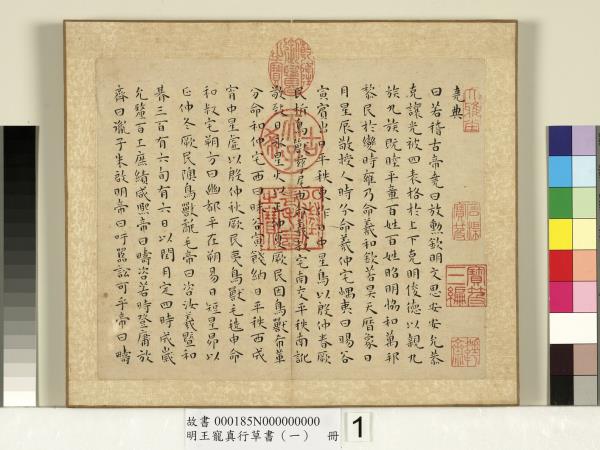 堯典
曰若稽古帝堯曰放勲欽明文思安安允恭
克讓光被四表格于上下克明俊德以親九
族九族既睦平章百姓百姓昭明恊和萬邦
黎民於變時雍乃命羲和欽若昊天曆象日
月星辰敬授人時分命羲仲宅嵎夷曰暘谷
寅賓出日平秩東作日中星鳥以殷仲春厥
民析鳥獸孳尾申命羲叔宅南交平秩南訛
敬致日永星火以正仲夏厥民因鳥獸希革
分命和仲宅西曰昧谷寅餞納日平秩西成
宵中星虛以殷仲秋厥民夷鳥獸毛毨申命
和叔宅朔方曰幽都平在朔易日短星昴以
正仲冬厥民隩鳥獸氄毛帝曰咨汝羲暨和
朞三百有六旬有六日以閏月定四時成歲
允釐百工庶績咸熙帝曰疇咨若時登庸放
齊曰胤子朱啟明帝曰吁嚚訟可乎帝曰疇
故書 000185N000000000
明王寵真行草書（一） 冊 1